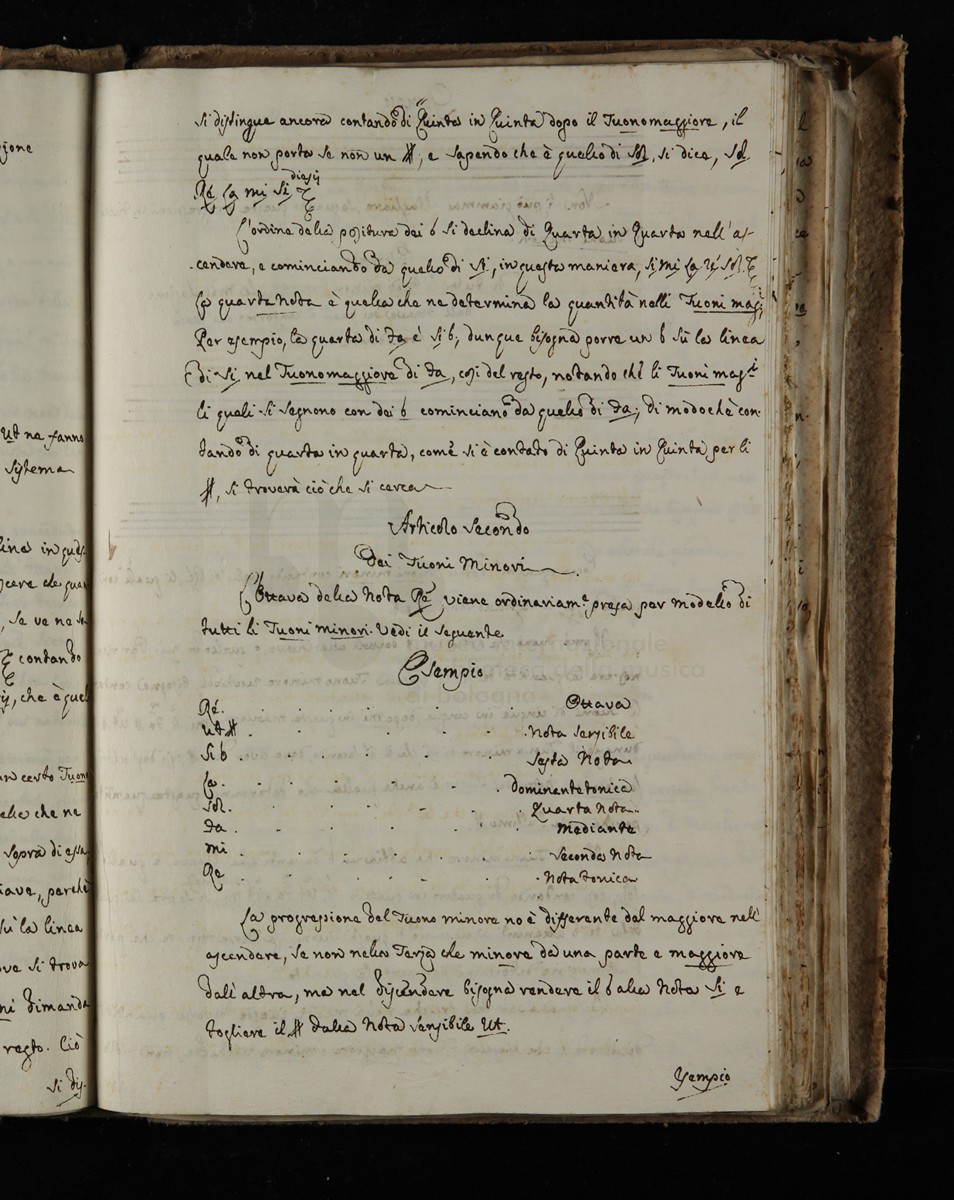 gione
Ut ne fanno
sistema
contando
che è quel
un certo Tuon
che ne
sopra di essa
perchè
sù la linea
si trova
dimanda
resto. Ciò
si dis-
si distingue ancora contando di Quinta in Quinta dopo il Tuono maggiore, il
quale non porta se non un #, e sapendo che è quello di Sol, si dice, Sol
Ré La mi Si diesis &
L'ordine della positura dei b si declina di Quarta in Quarta nell'as-
cendere, e cominciando da quello di Si, in questa maniera, Si mi La Ré Sol &
La quarta Nota è quella che ne determina la quantità nelli Tuoni mag:
Per esempio, la quarta di Fa è Si b, dunque bisogna porre un b sù la linea
di Si nel Tuono maggiore di Fa, così del resto, notando chè li Tuoni mag.ri
li quali si segnono con dei b cominciano da quello di Fa; di modochè con-
tando di quarta in quarta, comè si è contato di Quinta in Quinta per li
#, si troverà ciò che si cerca
Articolo Secondo
Dei Tuoni Minori
L'Ottava della Nota Ré viene ordinariam.e presa per modello di
tutti li Tuoni minori. Vedi il seguente
Esempio
Ré. Ottava
Ut #. Nota sensibile
Si b. Sesta Nota
La. Dominante tonica
Sol. Quarta Nota
Fa. Mediante
Mi. Seconda Nota
Re. Nota tonica
La progressione del Tuono minore no è differente dal maggiore nell'
ascendere, se non nella Terza che minore da una parte e maggiore
dall'altra, ma nel discendere bisogna rendere il b alla Nota Si e
togliere il # dalla Nota sensibile Ut.
Esempio